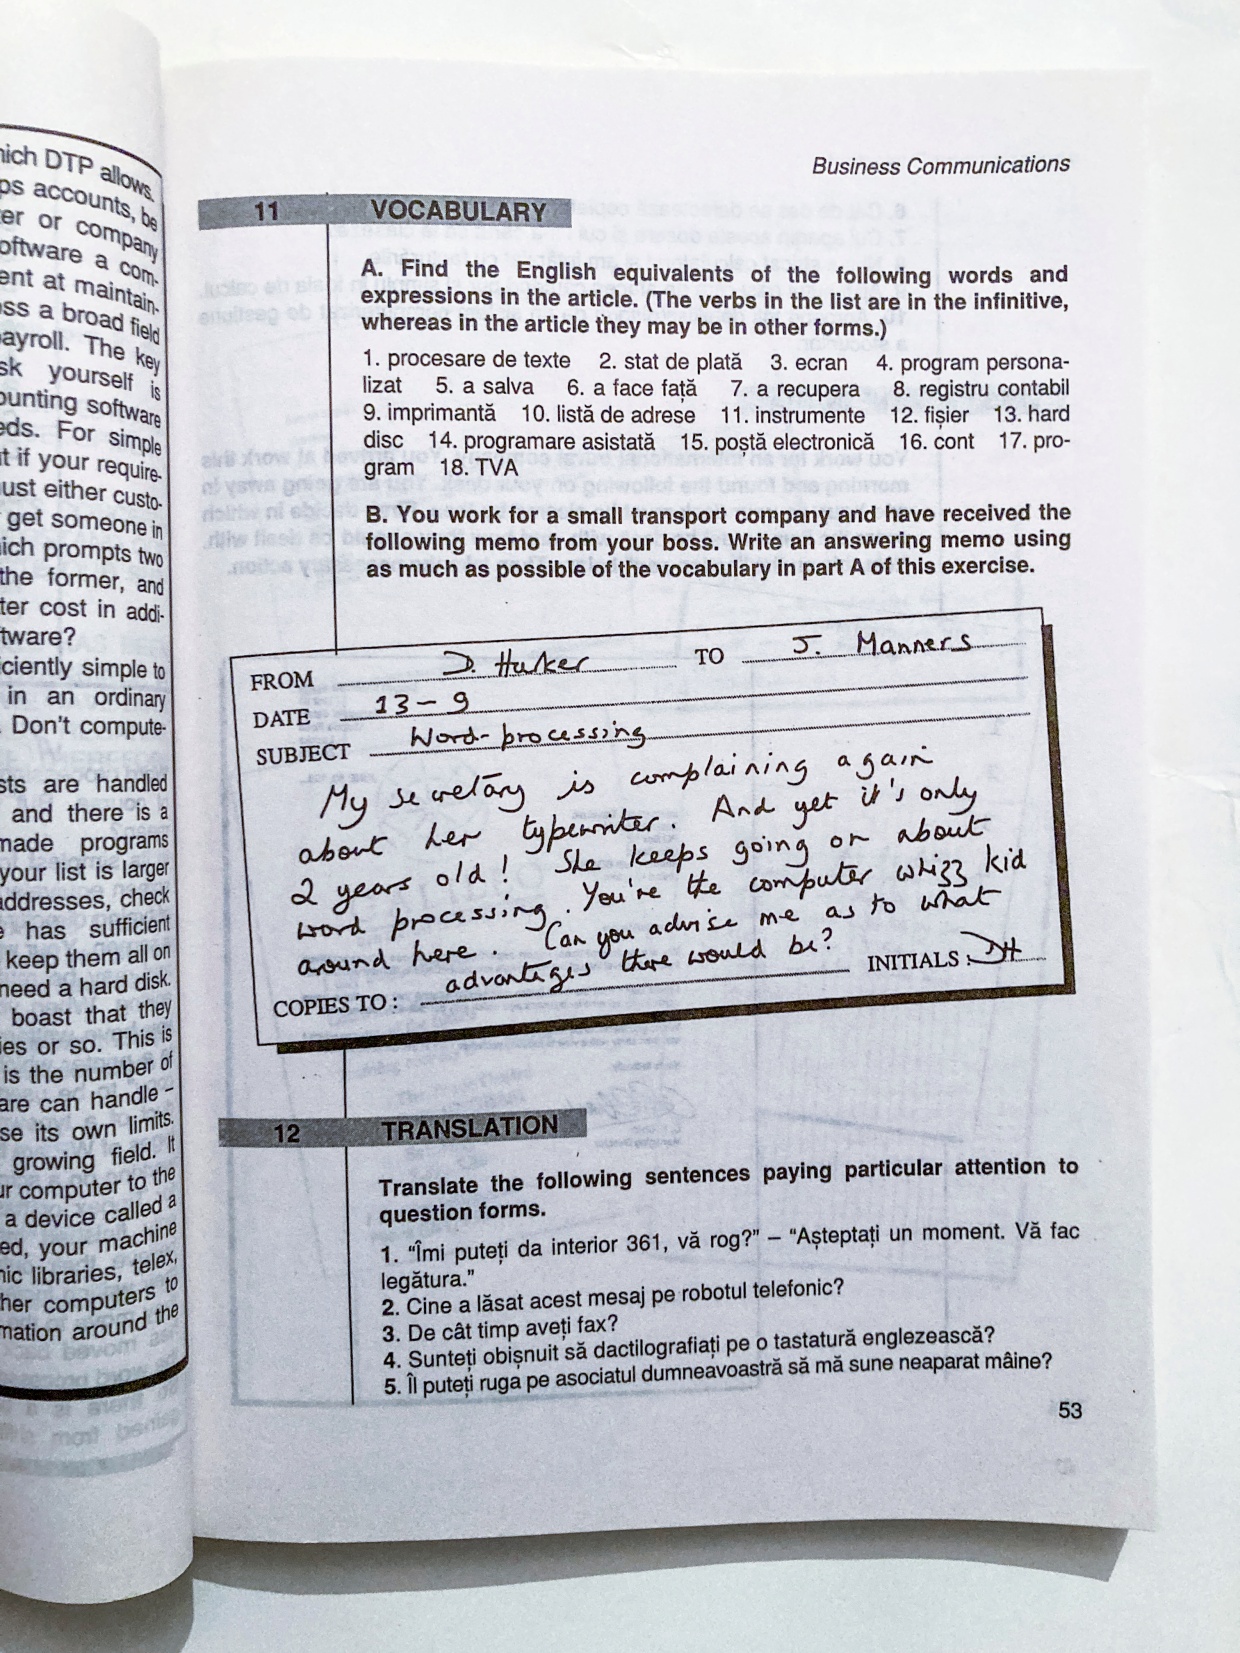 hich DTP allows.
ps accounts, be
er or company
oftware a com-
ent at maintain-
oss a broad field
payroll. The key
sk yourself is
ounting software
eds. For simple
t if your require-
ust either custo-
get someone in
ich prompts two
the former, and
ter cost in addi-
tware?
ciently simple to
in an ordinary
Don't compute-
sts are handled
and there is a
made programs
your list is larger
addresses, check
e has sufficient
keep them all on
need a hard disk.
boast that they
ies or so. This is
is the number of
are can handle –
se its own limits.
growing field. It
ur computer to the
a device called a
ed, your machine
nic libraries, telex,
her computers to
mation around the
Business Communications
11 VOCABULARY
A. Find the English equivalents of the following words and
expressions in the article. (The verbs in the list are in the infinitive,
whereas in the article they may be in other forms.)
1. procesare de texte 2. stat de plată 3. ecran 4. program persona-
lizat 5. a salva 6. a face față 7. a recupera 8. registru contabil
9. imprimantă 10. listă de adrese 11. instrumente 12. fișier 13. hard
disc 14. programare asistată 15. poștă electronică 16. cont 17. pro-
gram 18. TVA
B. You work for a small transport company and have received the
following memo from your boss. Write an answering memo using
as much as possible of the vocabulary in part A of this exercise.
FROM D. Husker TO J. Manners
DATE 13-9
SUBJECT Word-processing
My secretary is complaining again
about her typewriter. And yet it's only
2 years old! She keeps going on about
word processing. You're the computer whizz kid
around here. Can you advise me as to what
advantages there would be?
COPIES TO: INITIALS: DH
12 TRANSLATION
Translate the following sentences paying particular attention to
question forms.
1. "Îmi puteți da interior 361, vă rog?" – "Așteptați un moment. Vă fac
legătura."
2. Cine a lăsat acest mesaj pe robotul telefonic?
3. De cât timp aveți fax?
4. Sunteți obișnuit să dactilografiați pe o tastatură englezească?
5. Îl puteți ruga pe asociatul dumneavoastră să mă sune neaparat mâine?
53